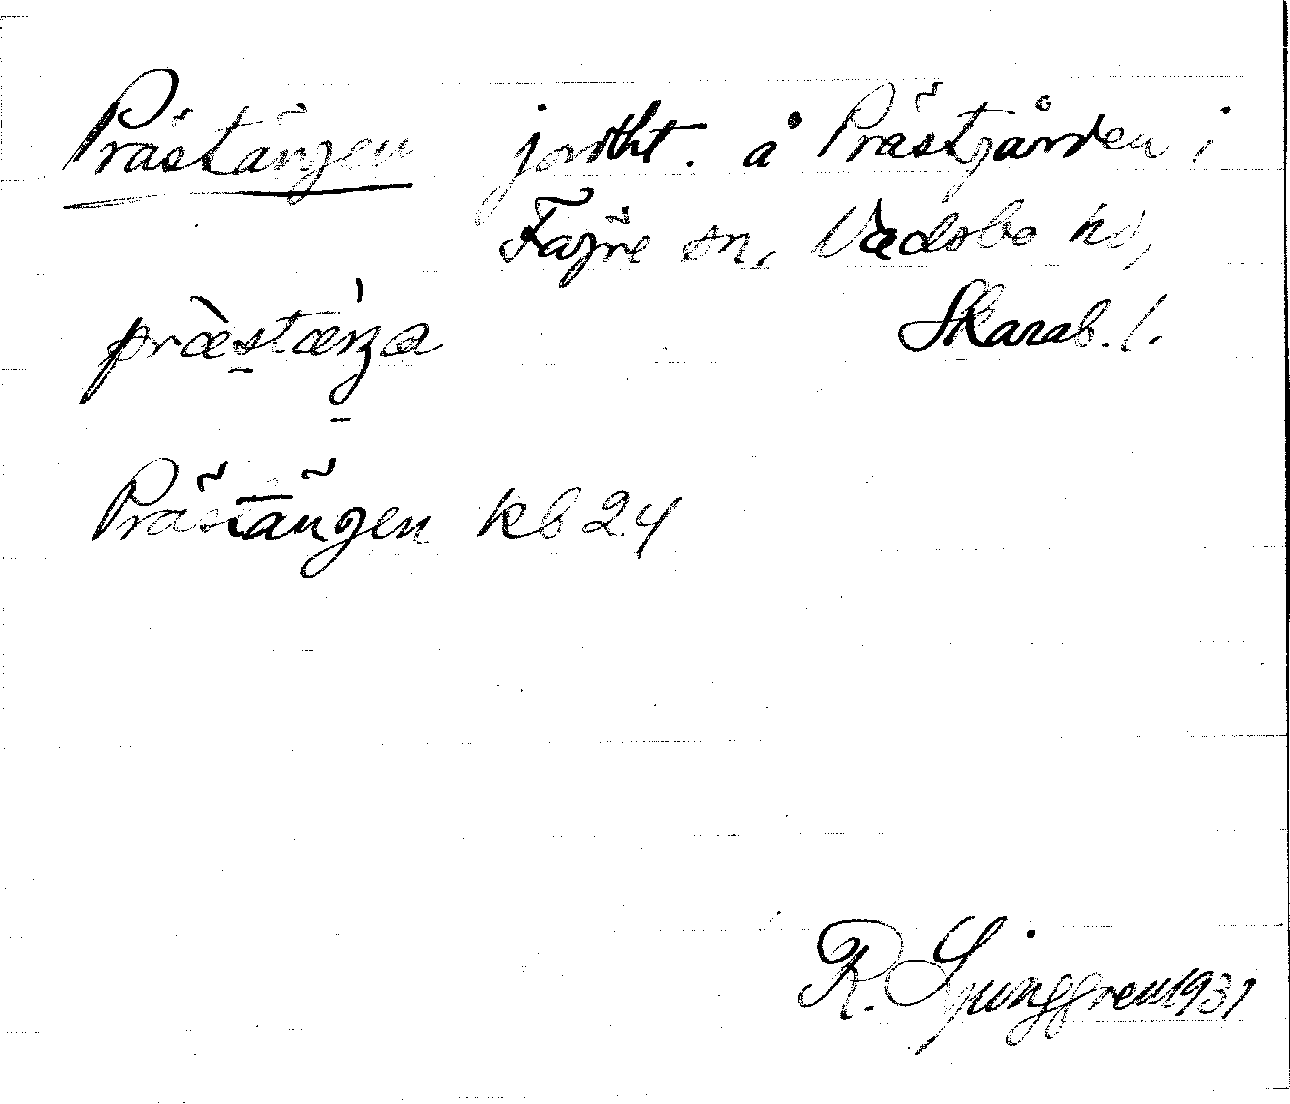 Prästängen jordht. å Prästgården i
Fägre sn, Vadsbo hd,
præstæŋa Skarab. l.
Prästängen kb 24
R. Ljunggren 1931